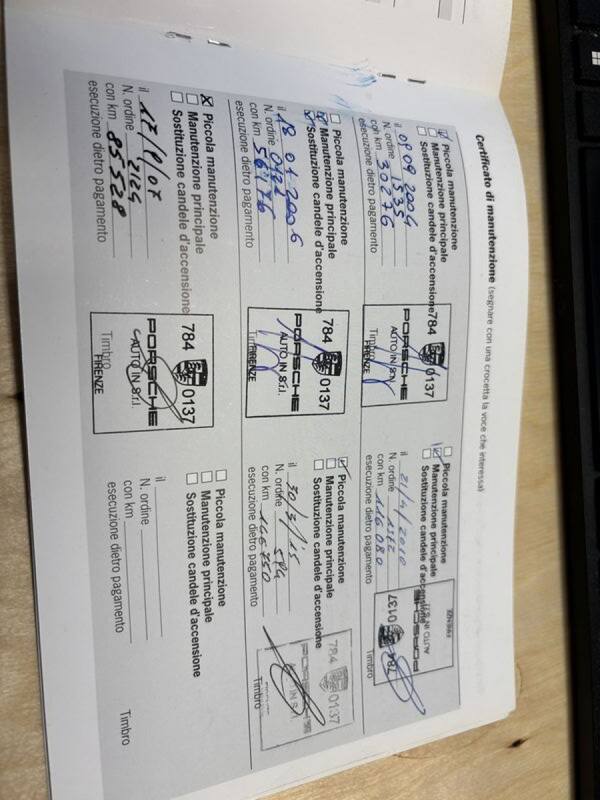 Certificato di manutenzione (segnare con una crocetta la voce che interessa)
Piccola manutenzione
Manutenzione principale
Sostituzione candele d'accensione
il 09 09 2004
N. ordine 1535
con km 30276
esecuzione dietro pagamento
784 0137
PORSCHE
AUTO IN S.r.l.
Timbro
FIRENZE
Piccola manutenzione
Manutenzione principale
Sostituzione candele d'accensione
il 18 01 2006
N. ordine
con km
esecuzione dietro pagamento
784 0137
PORSCHE
AUTO IN S.r.l.
Timbro
FIRENZE
X Piccola manutenzione
Manutenzione principale
Sostituzione candele d'accensione
il
N. ordine 2124
con km 85528
esecuzione dietro pagamento
784 0137
PORSCHE
AUTO IN S.r.l.
Timbro
FIRENZE
Piccola manutenzione
Manutenzione principale
Sostituzione candele d'accensione
il 21/4/2010
N. ordine
con km 116080
esecuzione dietro pagamento
FIRENZE
AUTO IN S.r.l.
PORSCHE
784 0137
Timbro
Piccola manutenzione
Manutenzione principale
Sostituzione candele d'accensione
il 30/3/15
N. ordine 594
con km
esecuzione dietro pagamento
784 0137
PORSCHE
Timbro
Piccola manutenzione
Manutenzione principale
Sostituzione candele d'accensione
il
N. ordine
con km
esecuzione dietro pagamento
Timbro